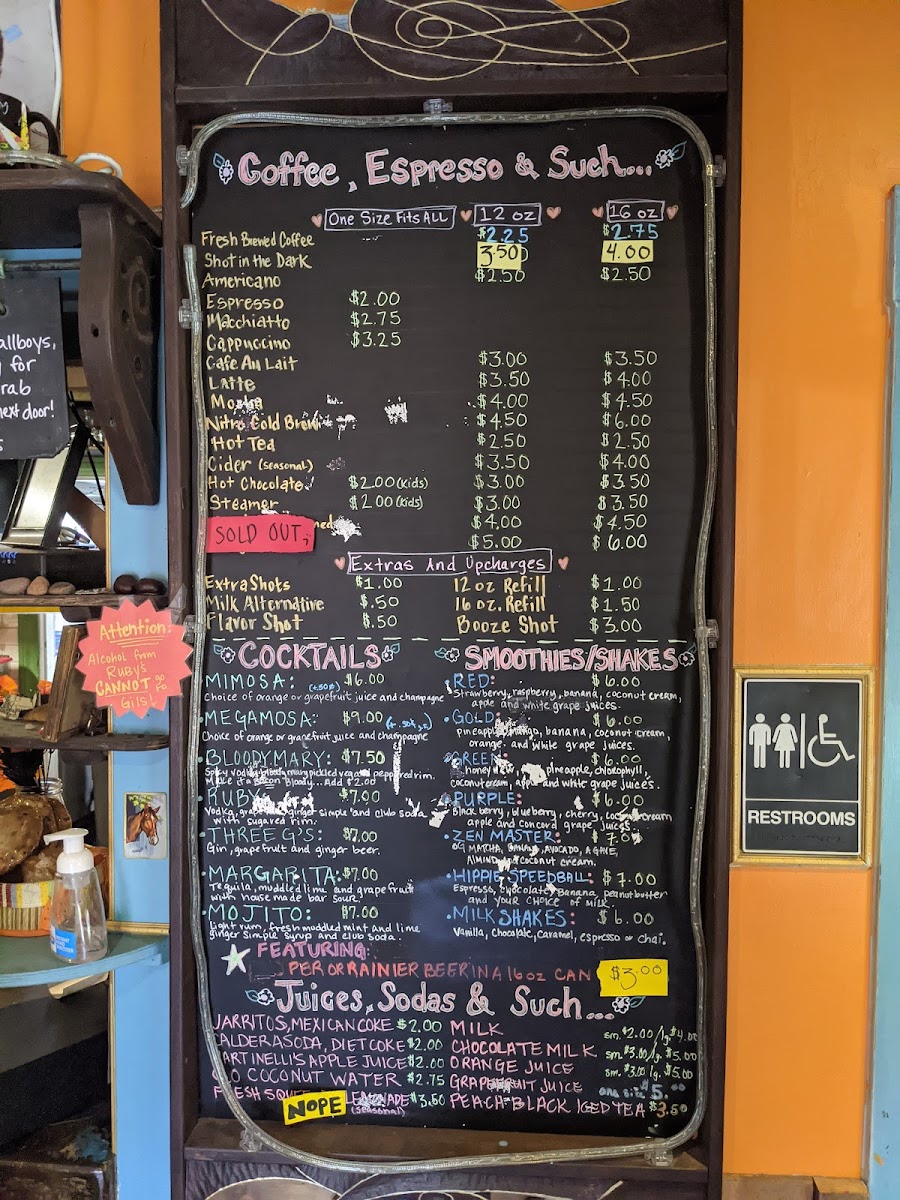 Coffee, Espresso & Such...
One Size Fits All 12 oz 16 oz
Fresh Brewed Coffee $2.25 $2.75
Shot in the Dark 3.50 4.00
Americano $2.50 $2.50
Espresso $2.00
Macchiatto $2.75
Cappuccino $3.25
Cafe Au Lait $3.00 $3.50
Latte $3.50 $4.00
Mocha $4.00 $4.50
Nitro Cold Brew $4.50 $6.00
Hot Tea $2.50 $2.50
Cider (seasonal) $3.50 $4.00
Hot Chocolate $2.00 (kids) $3.00 $3.50
Steamer $2.00 (kids) $3.00 $3.50
$4.00 $4.50
SOLD OUT; $5.00 $6.00
Extras And Upcharges
Extra Shots $1.00 12 oz Refill $1.00
Milk Alternative $.50 16 oz. Refill $1.50
Flavor Shot $.50 Booze Shot $3.00
COCKTAILS
MIMOSA: $6.00
Choice of orange or grapefruit juice and champagne
MEGAMOSA: $9.00
Choice of orange or grapefruit juice and champagne
BLOODY MARY: $7.50
Spicy vodka, bloody mary pickled veg and peppered rim.
Make it a Bacon Bloody... Add $2.00
RUBY $7.00
Vodka, ginger simple and club soda
with sugared rim.
THREE G'S: $7.00
Gin, grapefruit and ginger beer.
MARGARITA: $7.00
Tequila, muddled lime and grapefruit
with house made bar sour.
MOJITO: $7.00
Light rum, fresh muddled mint and lime
ginger simple syrup and club soda.
SMOOTHIES/SHAKES
RED: $6.00
Strawberry, raspberry, banana, coconut cream,
apple and white grape juices.
GOLD $6.00
pineapple, mango, banana, coconut cream,
orange and white grape juices.
GREEN $6.00
honeydew, pineapple, chlorophyll,
coconut cream, apple and white grape juices.
PURPLE: $6.00
Black berry, blueberry, cherry, coconut cream
apple and concord grape juices.
ZEN MASTER: $7.00
OG MATCHA, BANANA, AVOCADO, AGAVE,
ALMOND COCONUT CREAM.
HIPPIE SPEEDBALL: $7.00
Espresso, chocolate, banana, peanutbutter
and YOUR CHOICE OF MILK.
MILKSHAKES: $6.00
Vanilla, chocolate, caramel, espresso or chai.
FEATURING:
PBR OR RAINIER BEER IN A 16 oz CAN $3.00
Juices, Sodas & Such...
JARRITOS, MEXICAN COKE $2.00
CALDERA SODA, DIET COKE $2.00
MARTINELLI'S APPLE JUICE $2.00
COCONUT WATER $2.75
FRESH LEMONADE $3.50
NOPE (seasonal)
MILK sm. $2.00 / lg. $4.00
CHOCOLATE MILK sm. $3.00 / lg. $5.00
ORANGE JUICE sm. $3.00 / lg. $5.00
GRAPEFRUIT JUICE one size $5.00
PEACH BLACK ICED TEA $3.50
Attention:
Alcohol from
Ruby's
CANNOT go
to
Gils!
allboys,
for
rab
next door!
RESTROOMS